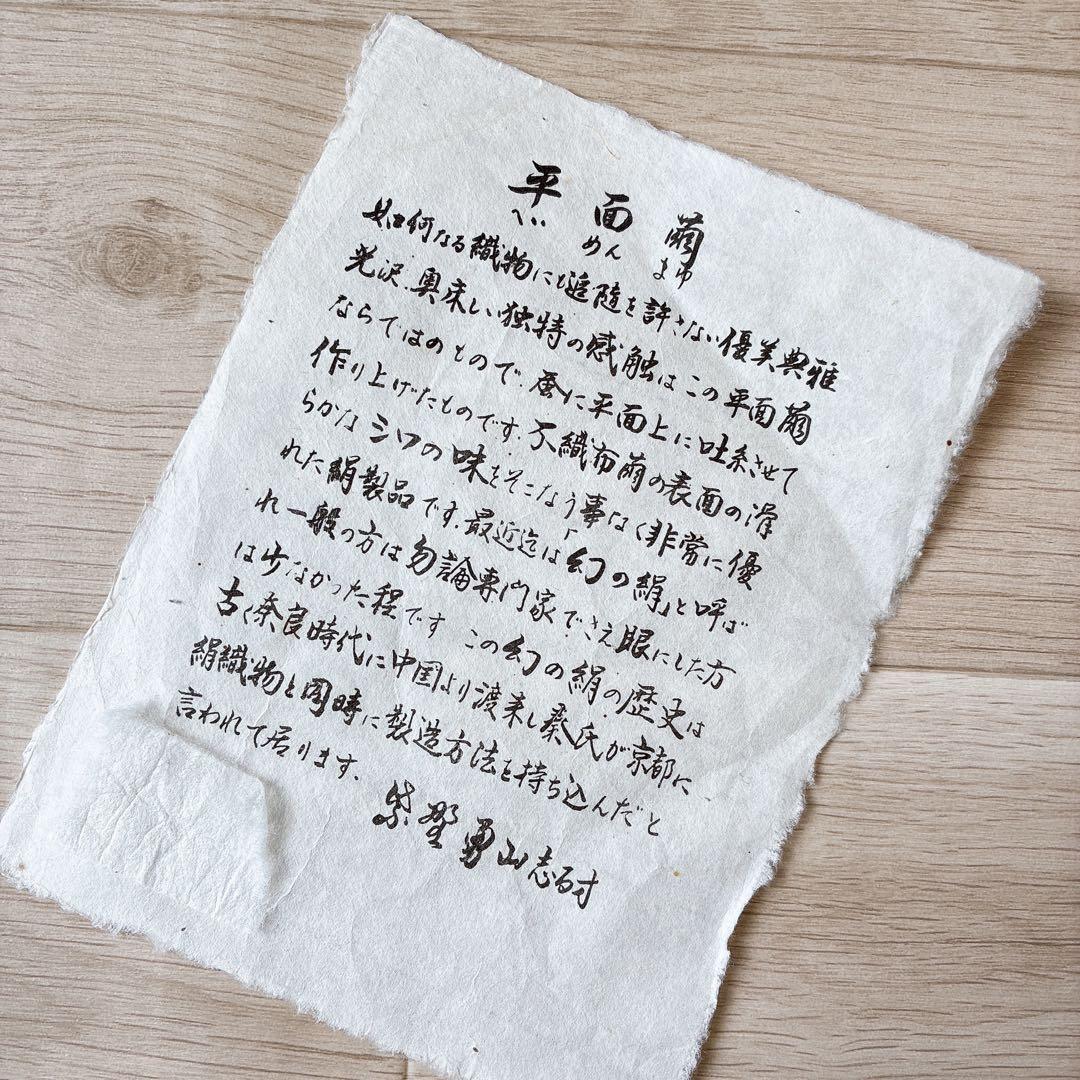 平面繭
へいめんまゆ
如何なる織物にも追随を許さない優美典雅
光沢、奥床しい独特の感触はこの平面繭
ならではのもので、蚕に平面上に吐糸させて
作り上げたものです。不織布繭の表面の滑
らかなシワの味をそこなう事なく非常に優
れた絹製品です。最近迄は「幻の絹」と呼ば
れ一般の方は勿論専門家でさえ眼にした方
は少なかった程です この幻の絹の歴史は
古く奈良時代に中国より渡来し秦氏が京都に
絹織物と同時に製造方法を持ち込んだと
言われて居ります。
紫野勇山志るす